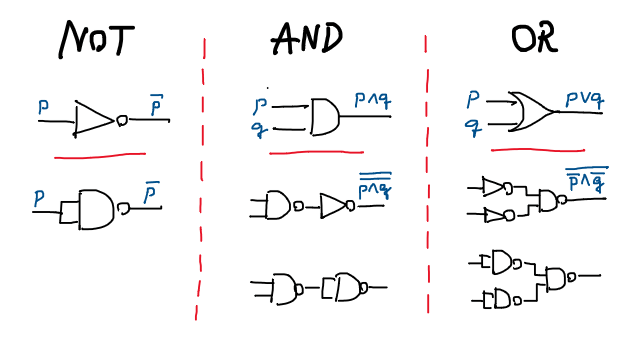 NOT
p
p̅
p
p̅
AND
p
q
p∧q
p̿∧̿q̿
OR
p
q
p∨q
p̿∧̿q̿